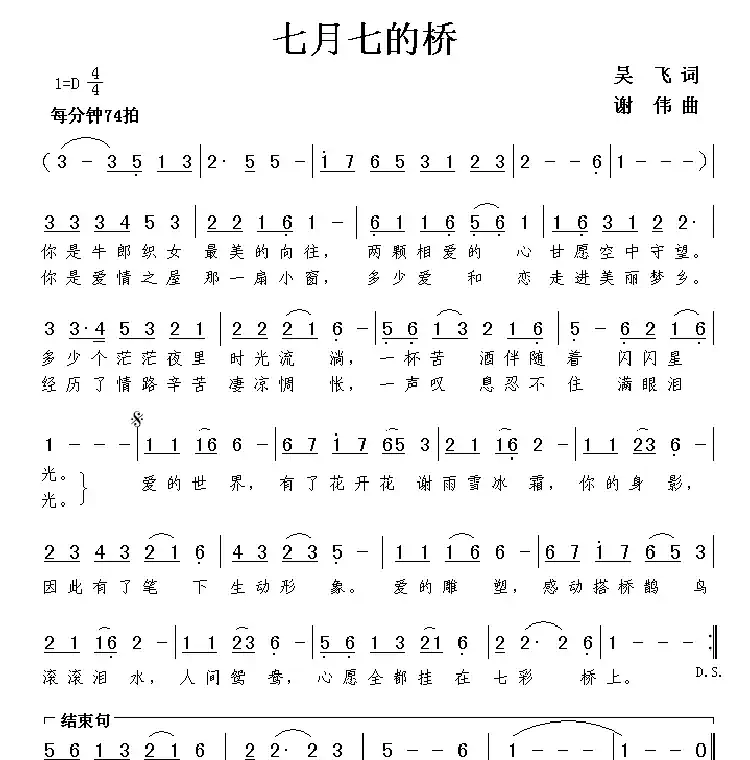 七月七的桥
1=D 4/4
吴 飞 词
每分钟74拍
谢 伟 曲
( 3 - 3 5 1 3 | 2· 5 5 - | i 7 6 5 3 1 2 3 | 2 - - 6 | 1 - - - )
3 3 3 4 5 3 | 2 2 1 6 1 - | 6 1 1 6 5 6 1 | 1 6 3 1 2 2· |
你是牛郎织女 最美的向往， 两颗相爱的 心 甘愿空中守望。
你是爱情之屋 那一扇小窗， 多少爱 和 恋 走进美丽梦乡。
3 3· 4 5 3 2 1 | 2 2 2 1 6 - | 5 6 1 3 2 2 1 6 | 5 - 6 2 1 6 |
多少个茫茫夜里 时光流 淌， 一杯苦 酒伴随 着 闪闪星
经历了情路辛苦 凄凉惆 怅， 一声叹 息忍不 住 满眼泪
1 - - - | 1 1 1 6 6 - | 6 7 i 7 6 5 3 | 2 1 1 6 2 - | 1 1 2 3 6 - |
光。 爱的世 界， 有了花开花 谢雨雪冰 霜， 你的身 影，
光。
2 3 4 3 2 1 6 | 4 3 2 3 5 - | 1 1 1 6 6 - | 6 7 i 7 6 5 3 |
因此有了笔 下 生动形 象。 爱的雕 塑， 感动搭桥鹊 鸟
2 1 1 6 2 - | 1 1 2 3 6 - | 5 6 1 3 2 1 6 | 2 2· 2 6 | 1 - - - :|
滚滚泪 水， 人间鸳 鸯， 心愿全都挂 在 七彩 桥上。 D.S.
结束句
5 6 1 3 2 1 6 | 2 2· 2 3 | 5 - - 6 | 1 - - - | 1 - - 0 ‖